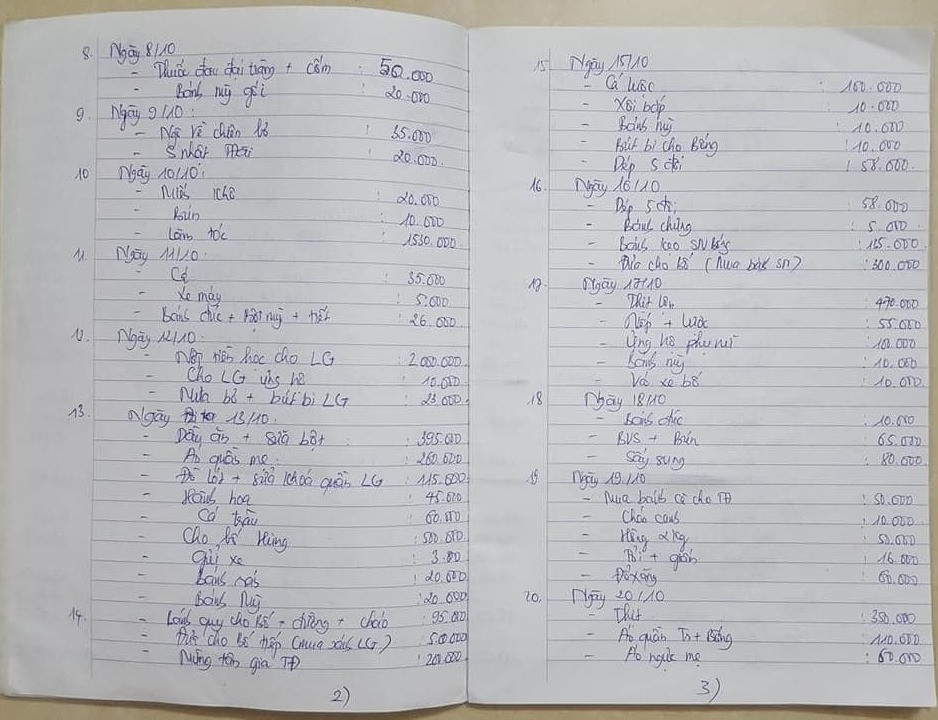 8. Ngày 8/10
- Thuốc đau đại tràng + cốm : 50.000
- Bánh mỳ gối : 20.000
9. Ngày 9/10 :
- Ngô về chiên bơ : 35.000
- S nhật : 20.000
10 Ngày 10/10 :
- Miến khô : 20.000
- Bún : 10.000
- Làm tóc : 1530.000
11. Ngày 11/10 :
- Cá : 35.000
- Xe máy : 5.000
- Bánh đúc + + tiết : 26.000
12. Ngày 12/10 :
- Nộp tiền học cho LG : 2.000.000
- Cho LG ủng hộ : 10.000
- Mua bở + bút bi LG : 23.000
13. Ngày 13/10.
- Dầu ăn + sữa bột : 395.000
- Áo quần mẹ : 260.000
- Đồ lót + sửa khoá quần LG : 115.000
- Hành hoa : 45.000
- Cá trầu : 60.000
- Cho bố Hùng : 500.000
- Gửi xe : 3.000
- Bánh : 20.000
- Bánh Mỳ : 20.000
14. - Bánh quy cho Bố + chưng + cháo : 95.000
- Đưa cho bố tiếp (mua LG) : 500.000
- Mừng tân gia TĐ : 200.000
2)
15 Ngày 15/10
- Cá lóc : 100.000
- Xôi bắp : 10.000
- Bánh mỳ : 10.000
- Bút bi cho Bống : 10.000
- Dép 5 đôi : 58.000
16. Ngày 16/10
- Dép 5 đôi : 58.000
- Bánh chưng : 5.000
- Bánh kẹo SN Bống : 125.000
- Đưa cho bố (Mua bánh SN) : 300.000
17. Ngày 17/10
- Thịt lợn : 470.000
- Nếp + lạc : 55.000
- Ủng hộ phụ nữ : 100.000
- Bánh mỳ : 10.000
- Vá xe bố : 10.000
18 Ngày 18/10
- Bánh đúc : 10.000
- BVS + Bún : 65.000
- Sấy sung : 80.000
19 Ngày 19/10
- Mua bánh cá cho TĐ : 50.000
- Cháo canh : 10.000
- Hồng 2kg : 50.000
- + : 16.000
- Đổ xăng : 60.000
20. Ngày 20/10
- Thịt : 350.000
- Áo quần Tn + Bống : 110.000
- Áo ngực mẹ : 60.000
3)